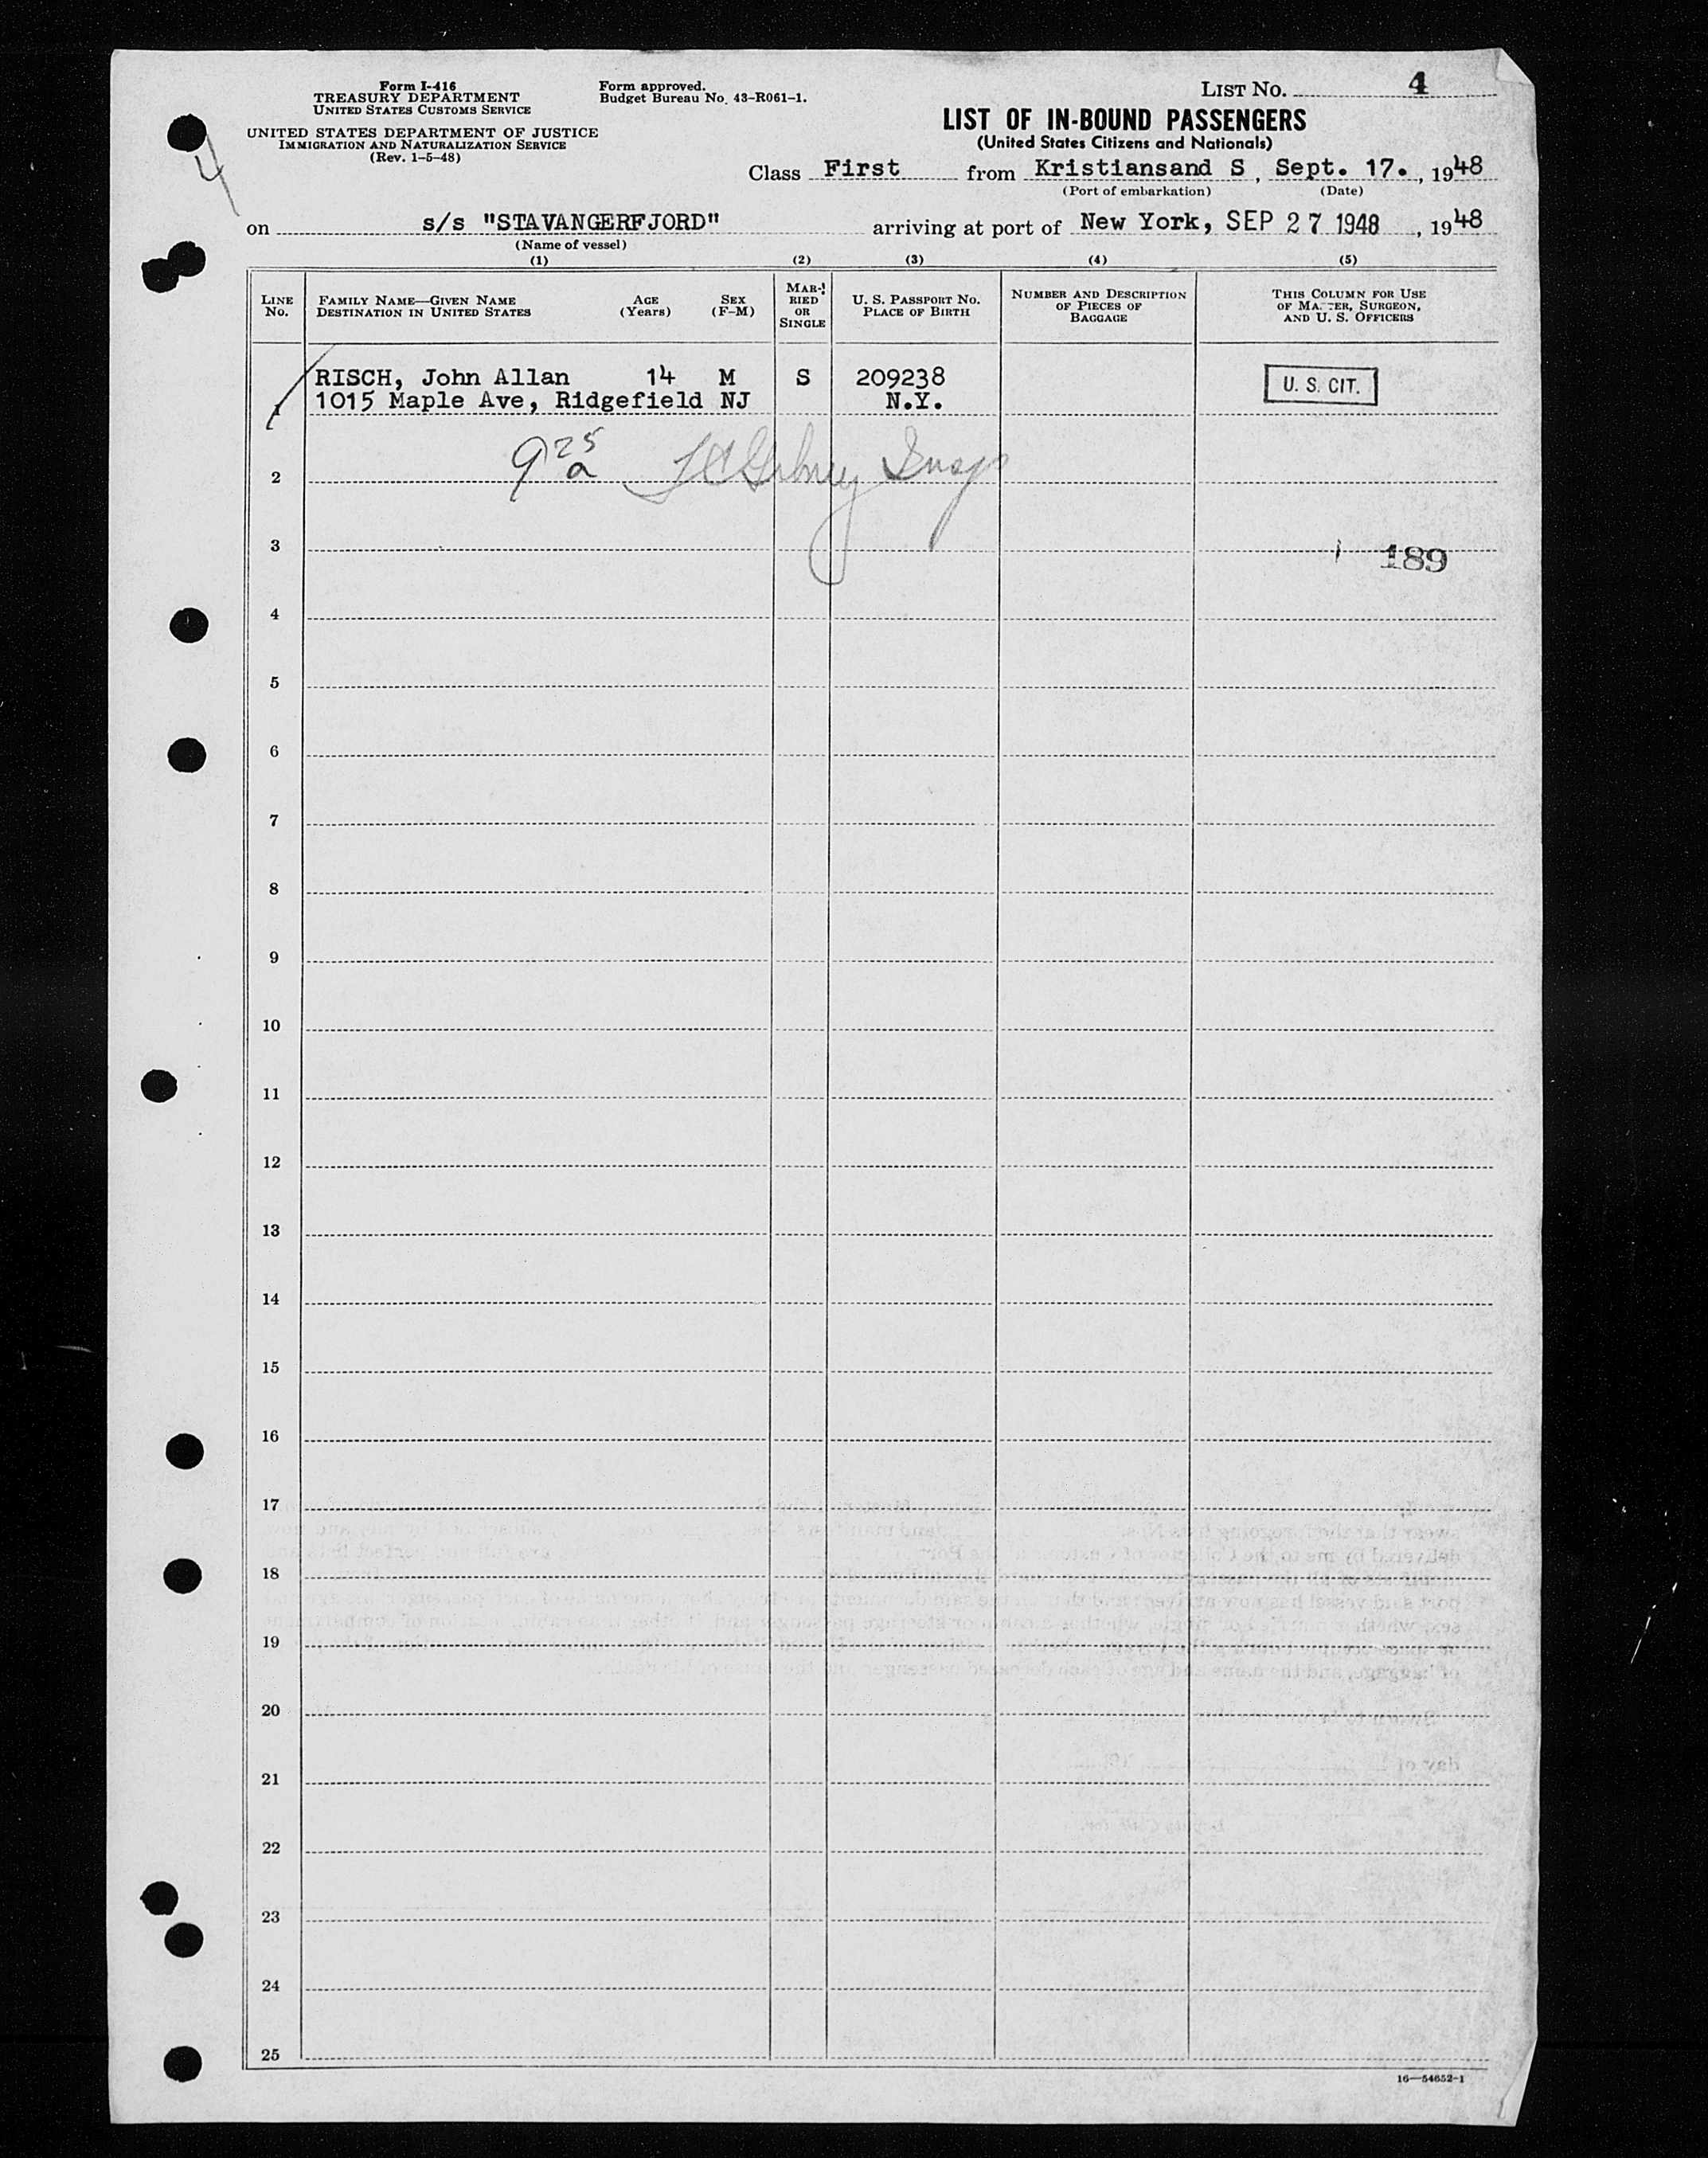 Form I-416
TREASURY DEPARTMENT
UNITED STATES CUSTOMS SERVICE
UNITED STATES DEPARTMENT OF JUSTICE
IMMIGRATION AND NATURALIZATION SERVICE
(Rev. 1-5-48)
Form approved.
Budget Bureau No. 43-R061-1.
LIST No. 4
LIST OF IN-BOUND PASSENGERS
(United States Citizens and Nationals)
4
Class First from Kristiansand S, Sept. 17., 1948
(Port of embarkation) (Date)
on s/s "STAVANGERFJORD" arriving at port of New York, SEP 27 1948, 1948
(Name of vessel)
(1) (2) (3) (4) (5)
LINE No.
FAMILY NAME—GIVEN NAME
DESTINATION IN UNITED STATES
AGE (Years)
SEX (F-M)
MARRIED OR SINGLE
U. S. PASSPORT No.
PLACE OF BIRTH
NUMBER AND DESCRIPTION
OF PIECES OF
BAGGAGE
THIS COLUMN FOR USE
OF MASTER, SURGEON,
AND U. S. OFFICERS
1 RISCH, John Allan 14 M S 209238 U. S. CIT.
1015 Maple Ave, Ridgefield NJ N.Y.
2 9 25 a Insp
3 189
4
5
6
7
8
9
10
11
12
13
14
15
16
17
18
19
20
21
22
23
24
25
16—54652-1